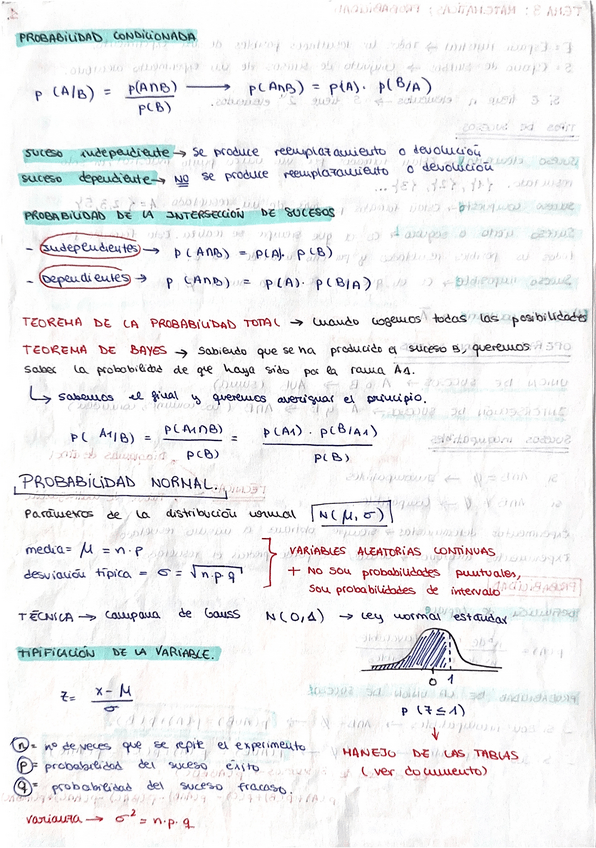 PROBABILIDAD CONDICIONADA
p (A/B) = p(A∩B) / p(B) → p(A∩B) = p(A) · p(B/A)
suceso independiente → Se produce reemplazamiento o devolución
suceso dependiente → NO se produce reemplazamiento o devolución
PROBABILIDAD DE LA INTERSECIÓN DE SUCESOS
- independientes → p(A∩B) = p(A) · p(B)
- Dependientes → p(A∩B) = p(A) · p(B/A)
TEOREMA DE LA PROBABILIDAD TOTAL → cuando cogemos todas las posibilidades
TEOREMA DE BAYES → Sabiendo que se ha producido el suceso B, queremos
saber la probabilidad de que haya sido por la rama A1.
↳ sabemos el final y queremos averiguar el principio.
p( A1/B) = p(A1∩B) / p(B) = p(A1) · p(B/A1) / p(B)
PROBABILIDAD NORMAL.
Parámetros de la distribución normal N(μ,σ)
media = μ = n·p
desviación típica = σ = √n·p·q
VARIABLES ALEATORIAS CONTINUAS
+ No son probabilidades puntuales,
son probabilidades de intervalo
TÉCNICA → campana de Gauss N(0,1) → Ley normal estándar
TIPIFICACIÓN DE LA VARIABLE.
0 1
z = x - μ / σ
p (z ≤ 1)
n = nº de veces que se repite el experimento
p = probabilidad del suceso éxito
q = probabilidad del suceso fracaso.
MANEJO DE LAS TABLAS
(ver documento)
varianza → σ² = n·p·q